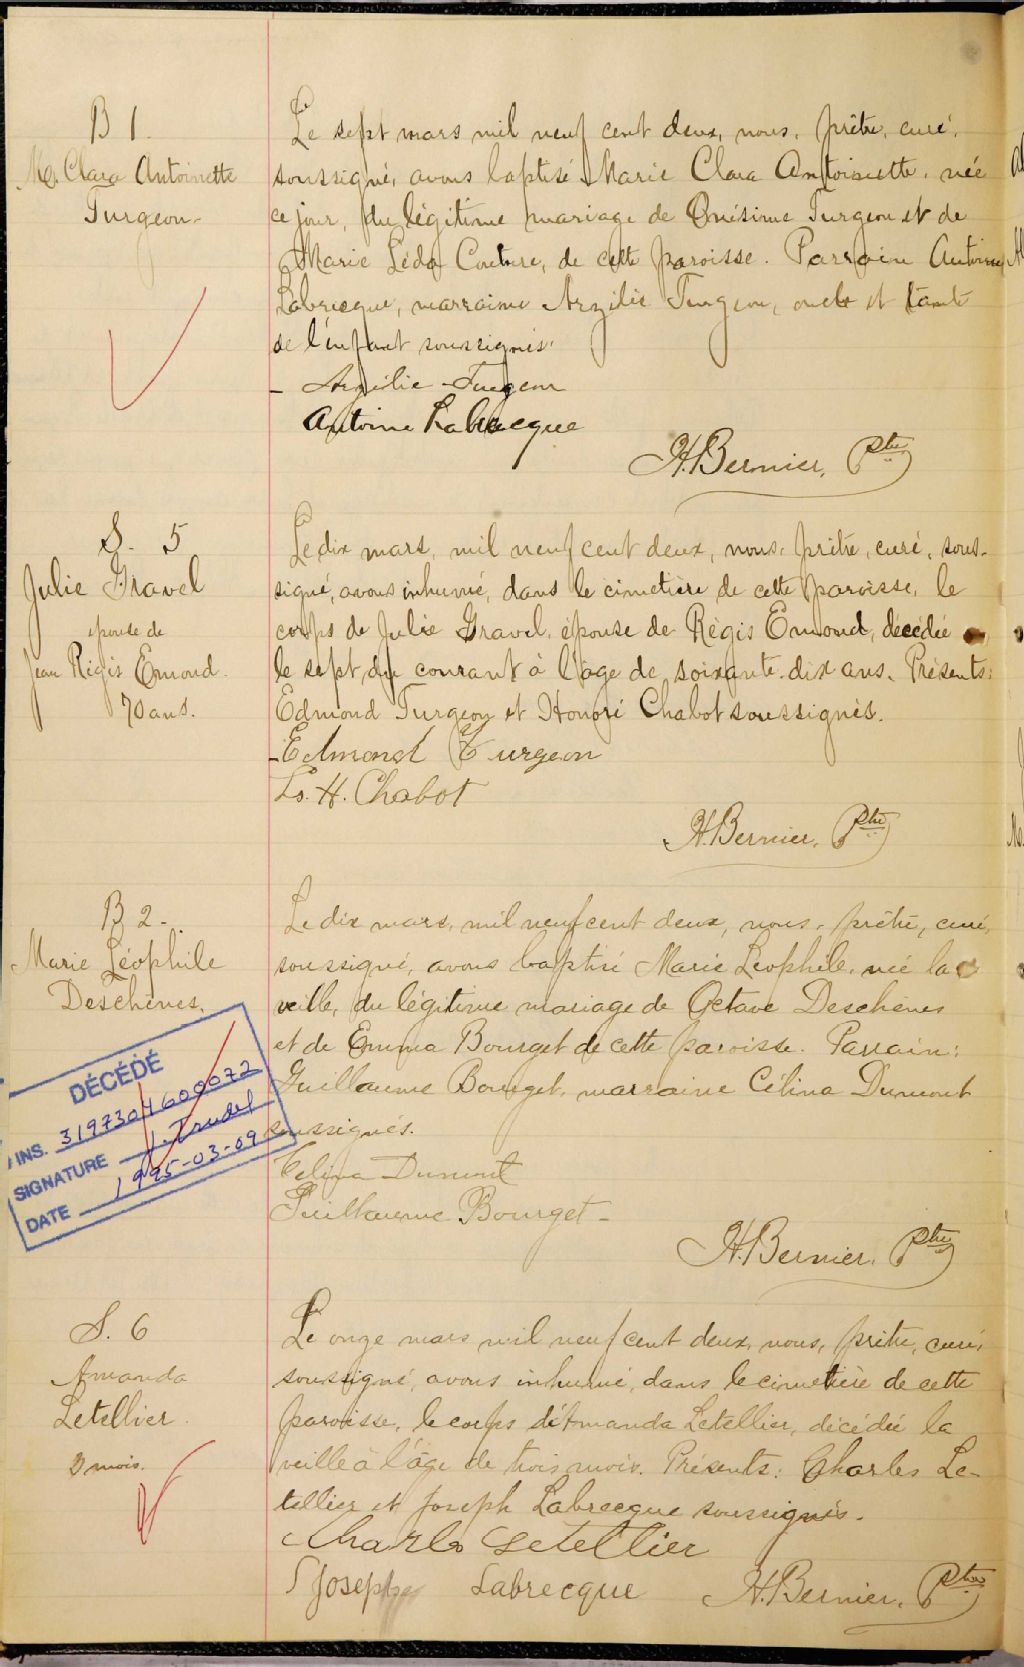 B 1.
M. Clara Antoinette
Turgeon
Le sept mars mil neuf cent deux, nous, prêtre, curé,
soussigné, avons baptisé Marie Clara Antoinette, née
ce jour, du légitime mariage de Onésime Turgeon et de
Marie Léda Couture, de cette paroisse. Parrain Antoine
Labrecque, marraine Arzélie Turgeon, oncle et tante
de l'enfant soussignés.
- Arzélie Turgeon
Antoine Labrecque
H. Bernier, Ptre
S. 5
Julie Gravel
épouse de
Jean Régis Emond.
70 ans.
Le dix mars, mil neuf cent deux, nous, prêtre, curé, sous-
signé, avons inhumé, dans le cimetière de cette paroisse, le
corps de Julie Gravel, épouse de Régis Emond, décédée
le sept du courant à l'âge de soixante-dix ans. Présents:
Edmond Turgeon et Honoré Chabot soussignés.
- Edmond Turgeon
Ls. H. Chabot
H. Bernier, Ptre
B 2.
Marie Léophile
Deschênes.
Le dix mars, mil neuf cent deux, nous, prêtre, curé,
soussigné, avons baptisé Marie Léophile, née la
veille, du légitime mariage de Octave Deschênes
et de Emma Bourget de cette paroisse. Parrain:
Guillaume Bourget, marraine Célina Dumont
soussignés.
Celina Dumont
Guillaume Bourget -
H. Bernier, Ptre
DÉCÉDÉ
INS. 3197304600072
SIGNATURE J. Trudel
DATE 1995-03-09
S. 6
Amanda
Letellier.
3 mois.
Le onze mars mil neuf cent deux, nous, prêtre, curé,
soussigné, avons inhumé, dans le cimetière de cette
paroisse, le corps d'Amanda Letellier, décédée la
veille à l'âge de trois mois. Présents: Charles Le-
tellier et Joseph Labrecque soussignés.
Charls Letellier
Joseph Labrecque
H. Bernier, Ptre